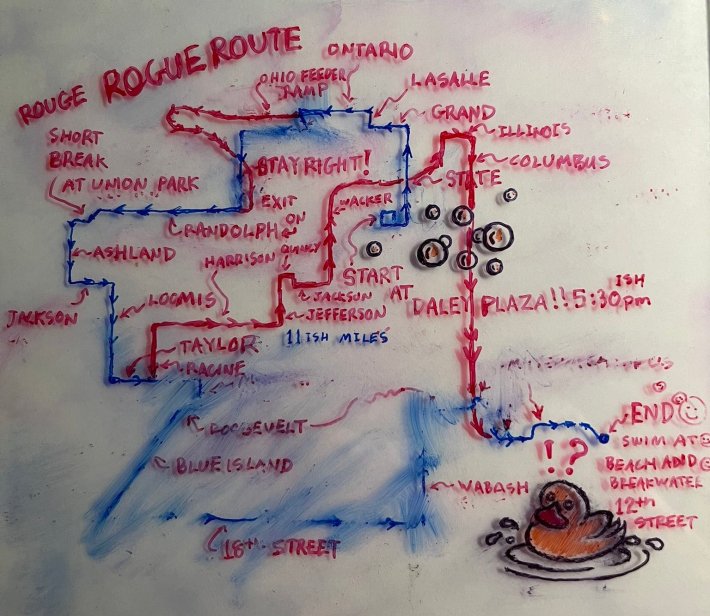 ROUGE ROGUE ROUTE
ONTARIO
OHIO FEEDER
RAMP
LASALLE
GRAND
ILLINOIS
COLUMBUS
SHORT
BREAK
AT UNION PARK
STAY RIGHT!
STATE
EXIT
ON
RANDOLPH
WACKER
ASHLAND
HARRISON
QUINCY
START
AT
DALEY PLAZA!! 5:30pm
ISH
JACKSON
LOOMIS
JACKSON
JEFFERSON
11ISH MILES
TAYLOR
RACINE
ROOSEVELT
END
SWIM AT
BEACH AND
BREAKWATER
12TH
STREET
!?
BLUE ISLAND
WABASH
18TH STREET